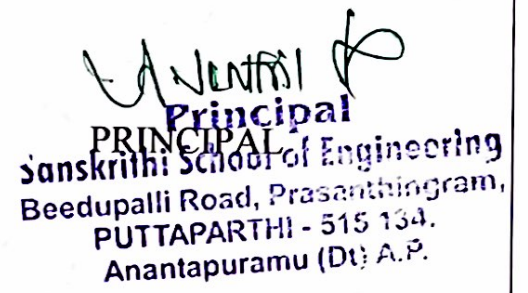 Principal
PRINCIPAL
Sanskrithi School of Engineering
Beedupalli Road, Prasanthingram,
PUTTAPARTHI - 515 134.
Anantapuramu (Dt) A.P.